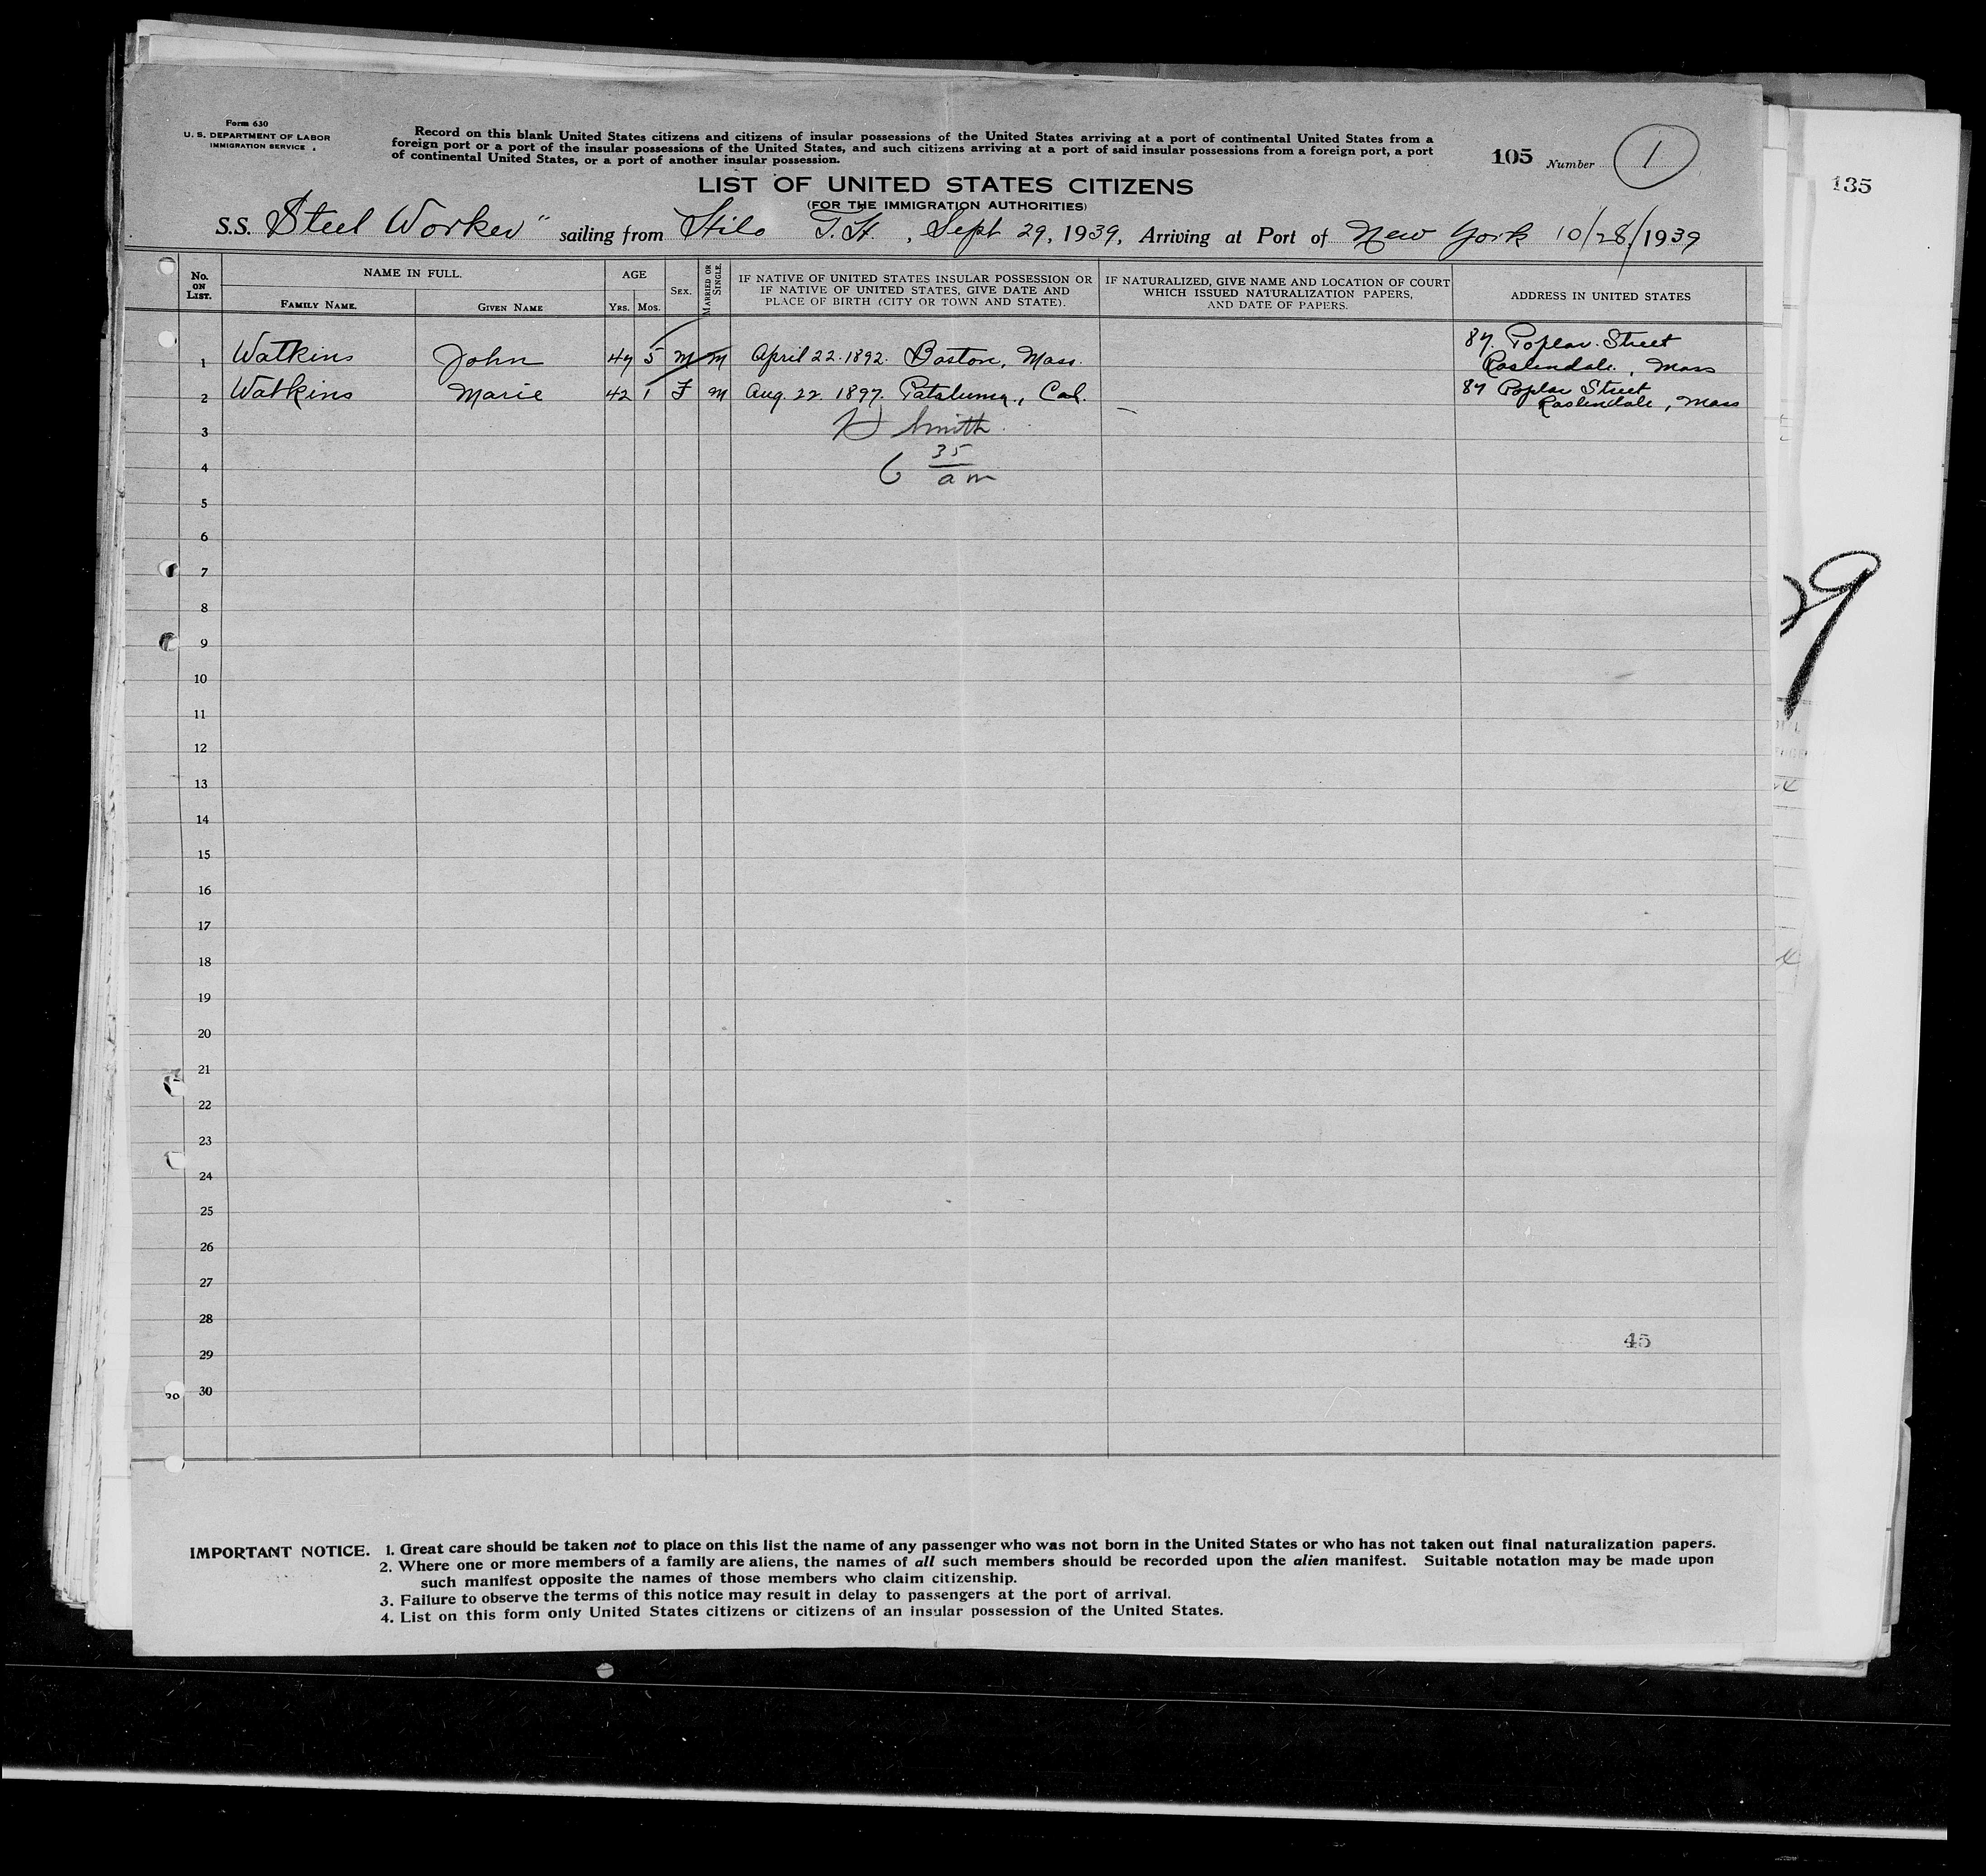 Form 630
U. S. DEPARTMENT OF LABOR
IMMIGRATION SERVICE
Record on this blank United States citizens and citizens of insular possessions of the United States arriving at a port of continental United States from a
foreign port or a port of the insular possessions of the United States, and such citizens arriving at a port of said insular possessions from a foreign port, a port
of continental United States, or a port of another insular possession.
105 Number 1
135
LIST OF UNITED STATES CITIZENS
(FOR THE IMMIGRATION AUTHORITIES)
S.S. Steel Worker" sailing from Hilo T.H. , Sept 29, 1939, Arriving at Port of New York 10/28/1939
No. ON LIST. NAME IN FULL. AGE SEX. MARRIED OR SINGLE. IF NATIVE OF UNITED STATES INSULAR POSSESSION OR IF NATIVE OF UNITED STATES, GIVE DATE AND PLACE OF BIRTH (CITY OR TOWN AND STATE). IF NATURALIZED, GIVE NAME AND LOCATION OF COURT WHICH ISSUED NATURALIZATION PAPERS, AND DATE OF PAPERS. ADDRESS IN UNITED STATES
FAMILY NAME. GIVEN NAME YRS. MOS.
1 Watkins John 47 5 M M April 22. 1892. Boston, Mass. 87. Poplar Street Roslendale, Mass
2 Watkins Marie 42 1 F M Aug. 22. 1897. Pataluma, Cal. — 87 Poplar Street Roslendale, Mass
3 Smith
4 6 35 am
5
6
7
8
9
29
10
11
12
13
14
15
16
17
18
19
20
21
22
23
24
25
26
27
28
45
29
30 30
IMPORTANT NOTICE. 1. Great care should be taken not to place on this list the name of any passenger who was not born in the United States or who has not taken out final naturalization papers.
2. Where one or more members of a family are aliens, the names of all such members should be recorded upon the alien manifest. Suitable notation may be made upon
such manifest opposite the names of those members who claim citizenship.
3. Failure to observe the terms of this notice may result in delay to passengers at the port of arrival.
4. List on this form only United States citizens or citizens of an insular possession of the United States.